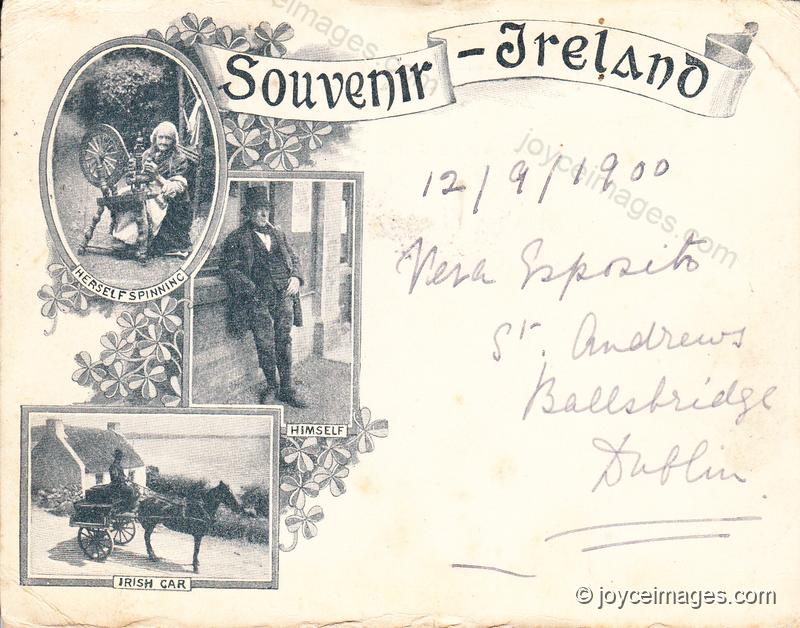 Souvenir - Ireland
12/9/1900
Vera Esposito
St. Andrews
Ballsbridge
Dublin.
HERSELF SPINNING
HIMSELF
IRISH CAR
joyceimages.com
joyceimages.com
© joyceimages.com